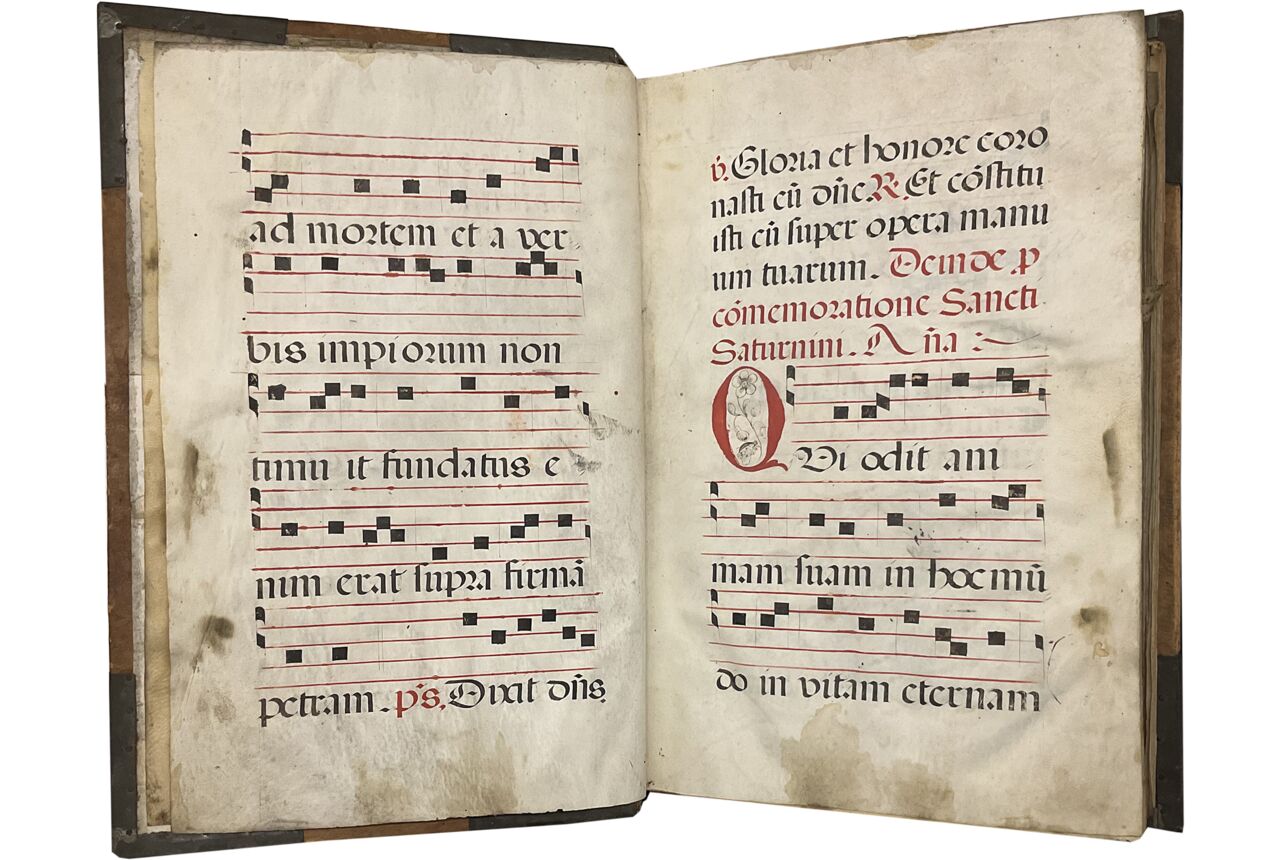 ad mortem et a ver
bis impiorum non
timu it fundatus e
nim erat supra firmã
petram. p̃s. Dixit dñs
℣. Gloria et honore coro
nasti eũ dñe. ℟. Et cõstitu
isti eũ super opera manu
um tuarum. Deinde p
cõmemoratione Sancti
Saturnini. Aña
QVi odit ani
mam suam in hoc mũ
do in vitam eternam